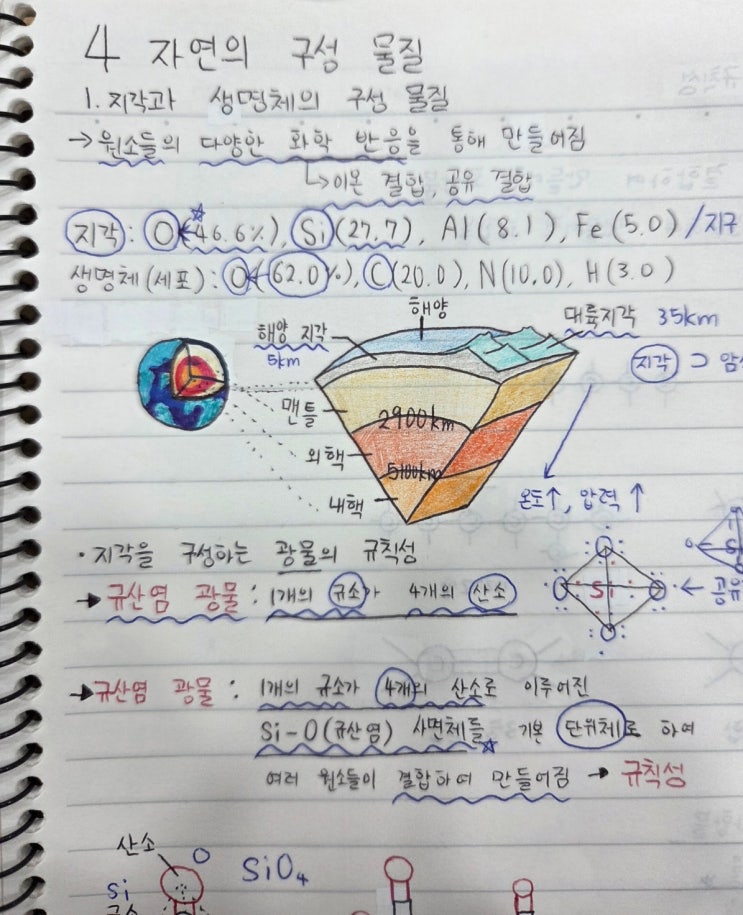 4 자연의 구성 물질
1. 지각과 생명체의 구성 물질
→원소들의 다양한 화학 반응을 통해 만들어짐
↳이온 결합, 공유 결합
지각: O(46.6%), Si(27.7), Al(8.1), Fe(5.0)/지구
생명체(세포): O(62.0%), C(20.0), N(10.0), H(3.0)
해양
해양 지각
5km
대륙지각 35km
지각 ⊃
맨틀
2900km
외핵
5100km
내핵
온도↑, 압력↑
· 지각을 구성하는 광물의 규칙성
→ 규산염 광물: 1개의 규소가 4개의 산소
Si
← 공유
→규산염 광물: 1개의 규소가 4개의 산소로 이루어진
Si-O(규산염) 사면체를 기본 단위체로 하여
여러 원소들이 결합하여 만들어짐 → 규칙성
산소
O
SiO₄
Si